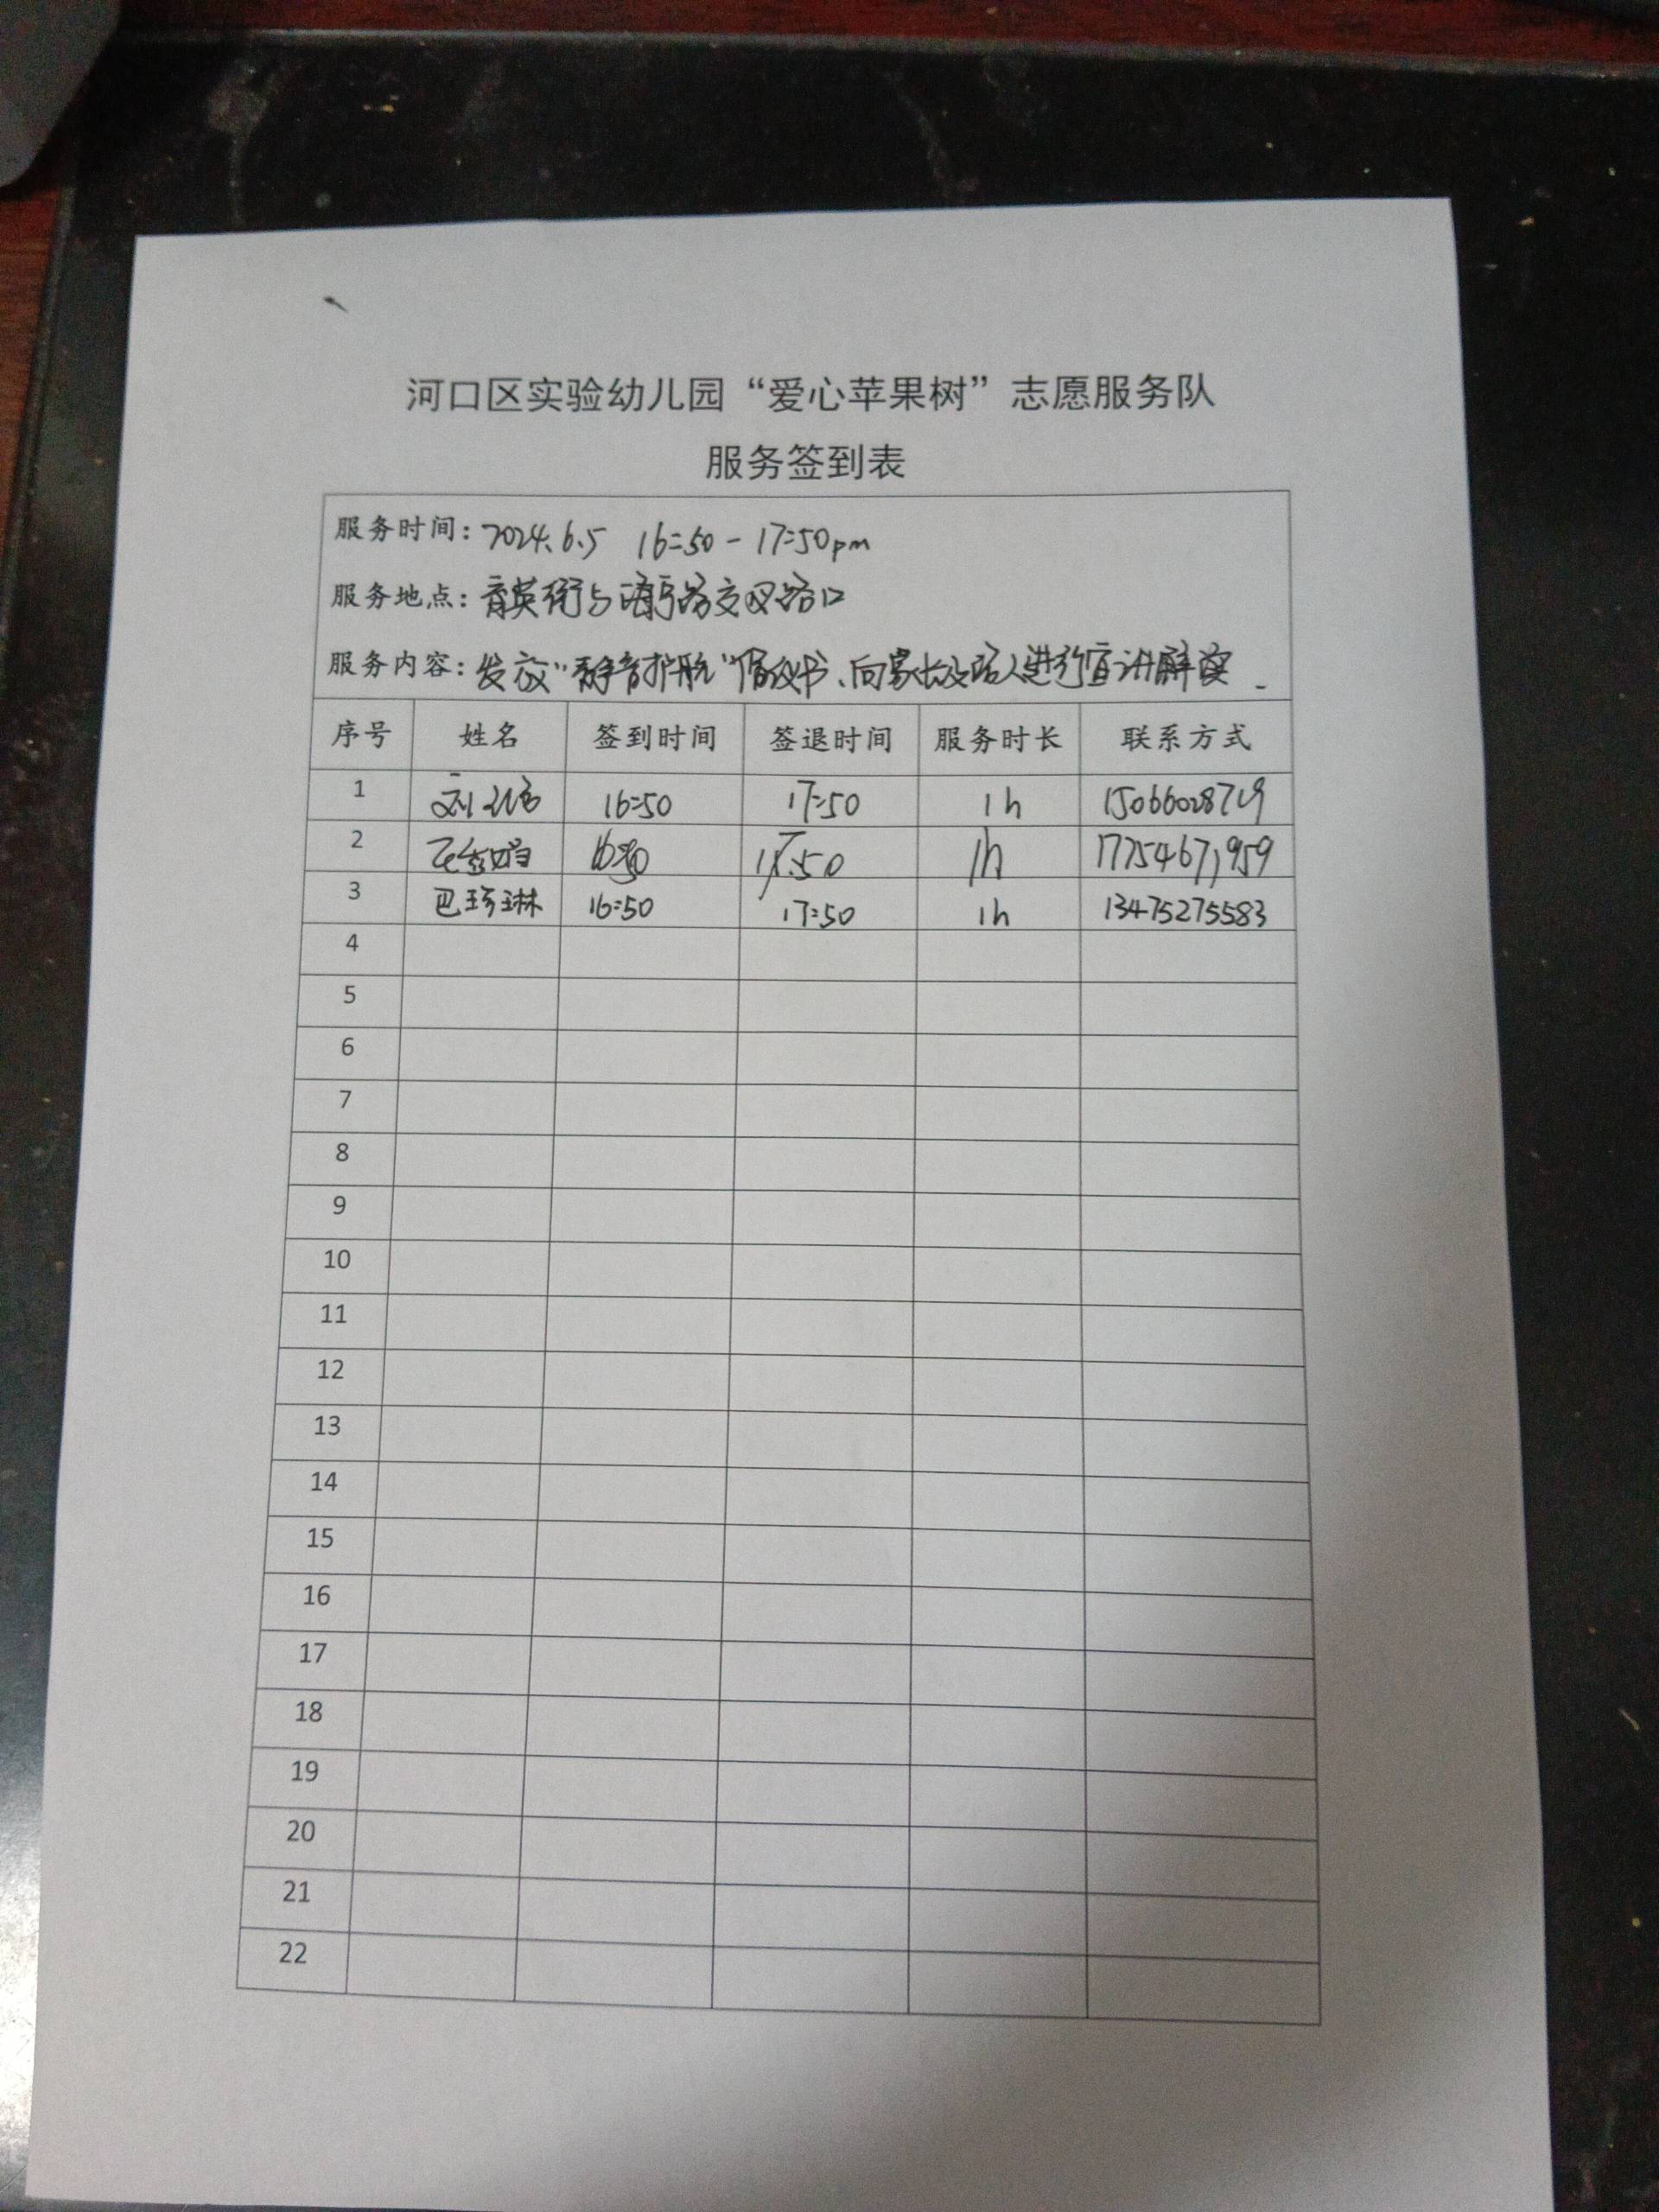 河口区实验幼儿园“爱心苹果树”志愿服务队
服务签到表
服务时间：2024.6.5 16:50-17:50pm
服务地点：育英街与海宁路交叉路口
服务内容：发放“静音护航”倡议书、向家长及路人进行宣讲解读.
序号 姓名 签到时间 签退时间 服务时长 联系方式
1 刘 16:50 17:50 1h 15066028719
2 16:50 17:50 1h 17754671959
3 巴珍琳 16:50 17:50 1h 13475275583
4
5
6
7
8
9
10
11
12
13
14
15
16
17
18
19
20
21
22